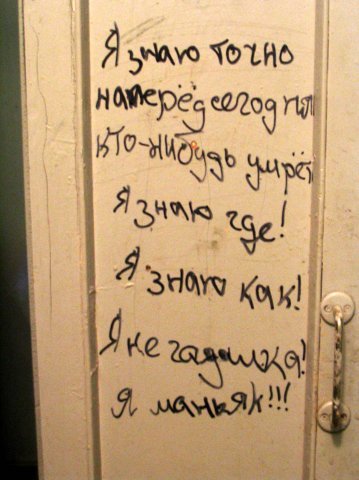 Я знаю точно
наперёд сегодня
кто-нибудь умрёт
Я знаю где!
Я знаю как!
Я не гадалка!
Я маньяк!!!